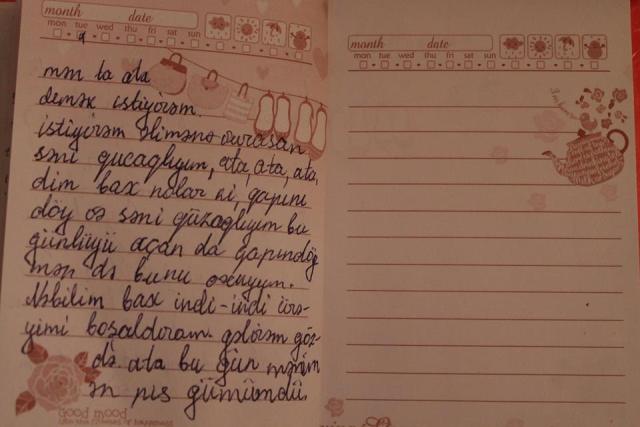 month date
mon tue wed thu fri sat sun
mən ta ata
demək istiyirəm.
istiyirəm əlimənə vurasan,
səni qucaqlıyım, ata, ata, ata,
dim bax nolar ki, qapını
döy və səni güzaqlıyım bu
günlüyü açan da qapındöy
mən də bunu oxuyum.
Nəbilim bax indi-indi ürə-
yimi boşaldoram. gəlirəm göz-
də. ata bu gün mənim
ən pis günümündü.
GOOD MOOD
month date
mon tue wed thu fri sat sun